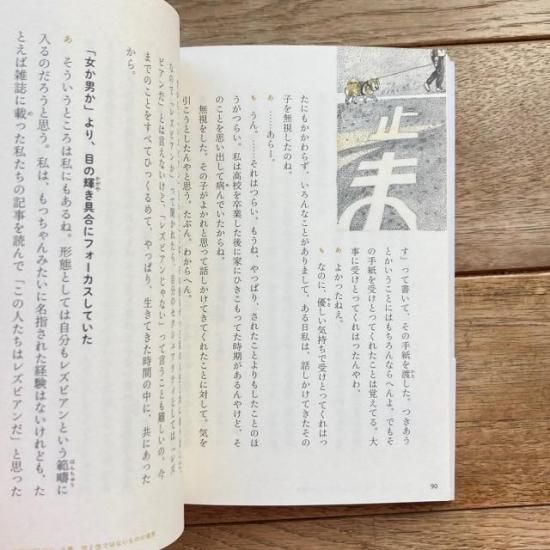 す」って書いて、その手紙を渡した。つきあう
とかいうことにはもちろんならへんよ。でもそ
の手紙を受けとってくれたことは覚えてる。大
事に受けとってくれはったんやわ。
あ　よかったねえ。
ち　なのに、優しい気持ちで受けとってくれはっ
たにもかかわらず、いろんなことがありまして、ある日私は、話しかけてきたその
子を無視したのね。
あ　あらー。
ち　うん。……それはつらい。もうね、やっぱり、されたことよりもしたことのほ
うがつらい。私は高校を卒業した後に家にひきこもってた時期があるんやけど、そ
のことを思い出して病んでいたからね。
無視をした。その子がよかれと思って話しかけてきてくれたことに対して。気を
引こうとしたんやと思う。たぶん。わからへん。
なので「レズビアンか」って聞かれたら、自分のセクシュアリティとしては「レズ
ビアンだ」とは言えないけど、「レズビアンじゃない」って言うことも難しいの。今
までのことをすべてひっくるめて、やっぱり、生きてきた時間の中に、共にあった
から。
「女か男か」より、目の輝き具合にフォーカスしていた
あ　そういうところは私にもあるね。形態としては自分もレズビアンという範疇に
入るのだろうと思う。私は、もっちゃんみたいに名指された経験はないけれども、た
とえば雑誌に載った私たちの記事を読んで「この人たちはレズビアンだ」と思った
90